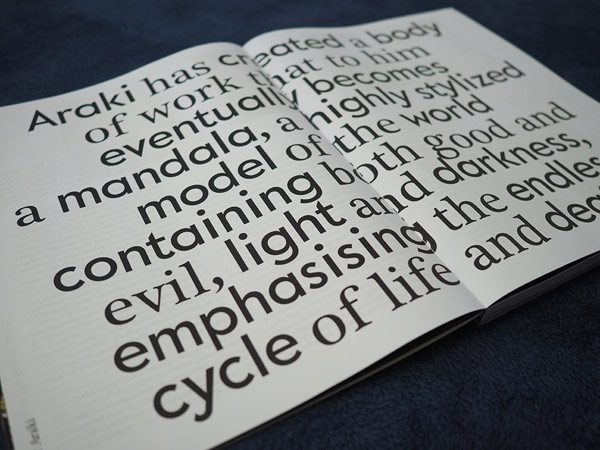 Araki has created a body
of work that to him
eventually becomes
a mandala, a highly stylized
model of the world
containing both good and
evil, light and darkness,
emphasising the endless
cycle of life and dea
Araki